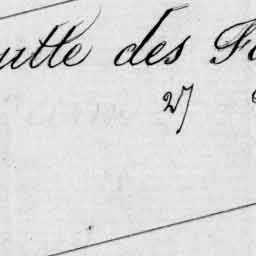 utte des F
27